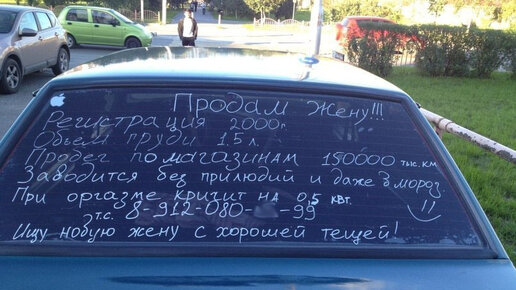 Продам Жену!!!
Регистрация 2000г
Объём груди 1,5 л.
Пробег по магазинам 180000 тыс.км
Заводится без прилюдий и даже в мороз
При оргазме кричит на 0,5 квт.
этс. 8-912-080- -99
Ищу новую жену с хорошей тещей!